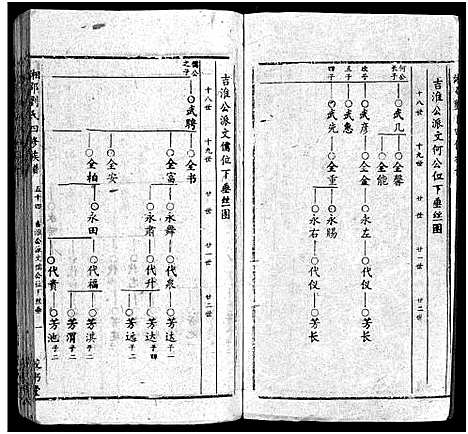 吉淮公派文何公位下垂丝图
十八世
十九世
廿世
廿一世
廿二世
何公长子
武几
全馨
全能
次子
武彦
全金
永左
代仪
芳长
五子
武惠
四子
武先
全重
永赐
永右
代仪
芳长
吉淮公派文儒位下垂丝图
十八世
十九世
廿世
廿一世
廿二世
儒公之子
武聘
全书
全富
永舜
代泉
芳达 子一
永肃
代升
芳达 子四
芳远 子二
全安
全柏
永田
代福
芳淇 子二
芳渭 子二
代贵
芳池 子二
湘乡刘氏四修族谱
五十四
吉淮公派文儒公位下丝垂
一